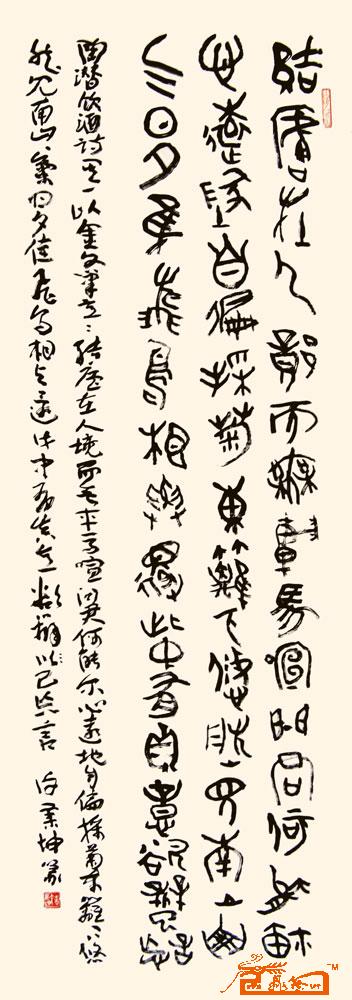 結廬在人境而無車馬喧問君何能爾
心遠地自偏採菊東籬下悠然見南山
气日夕隹飛鳥相與還此中有真意欲辯已忘言
陶潜饮酒诗其一以金文筆意結廬在人境而无車馬喧问君何能尔心遠地自偏採菊東籬下悠
然见南山氣日夕佳飞鳥相与还此中有真意欲辨已忘言